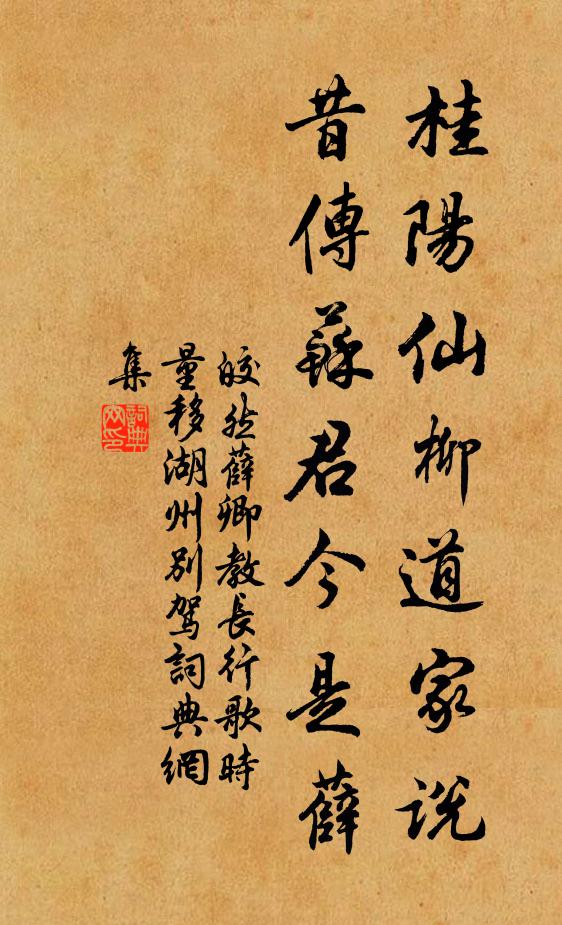 桂陽仙柳道家說
昔傳蘇君今是薛
皎然薛卿教長行歌時
量移湖州別駕詞典網
集
詞典網印